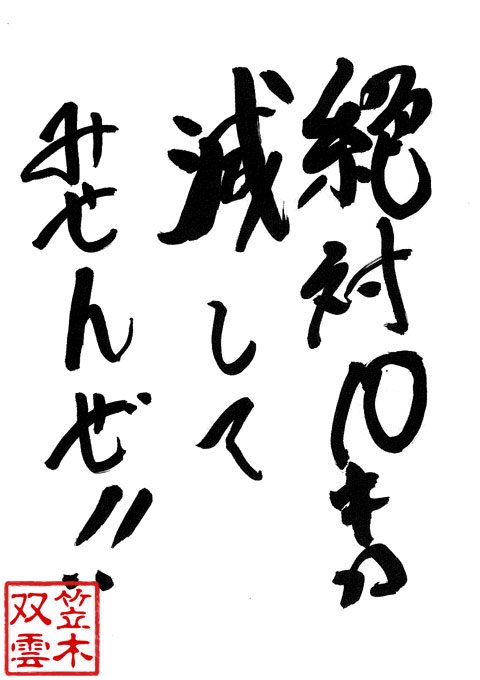 絶対10キロ
減して
みせんぜ!!
笠木
双雲